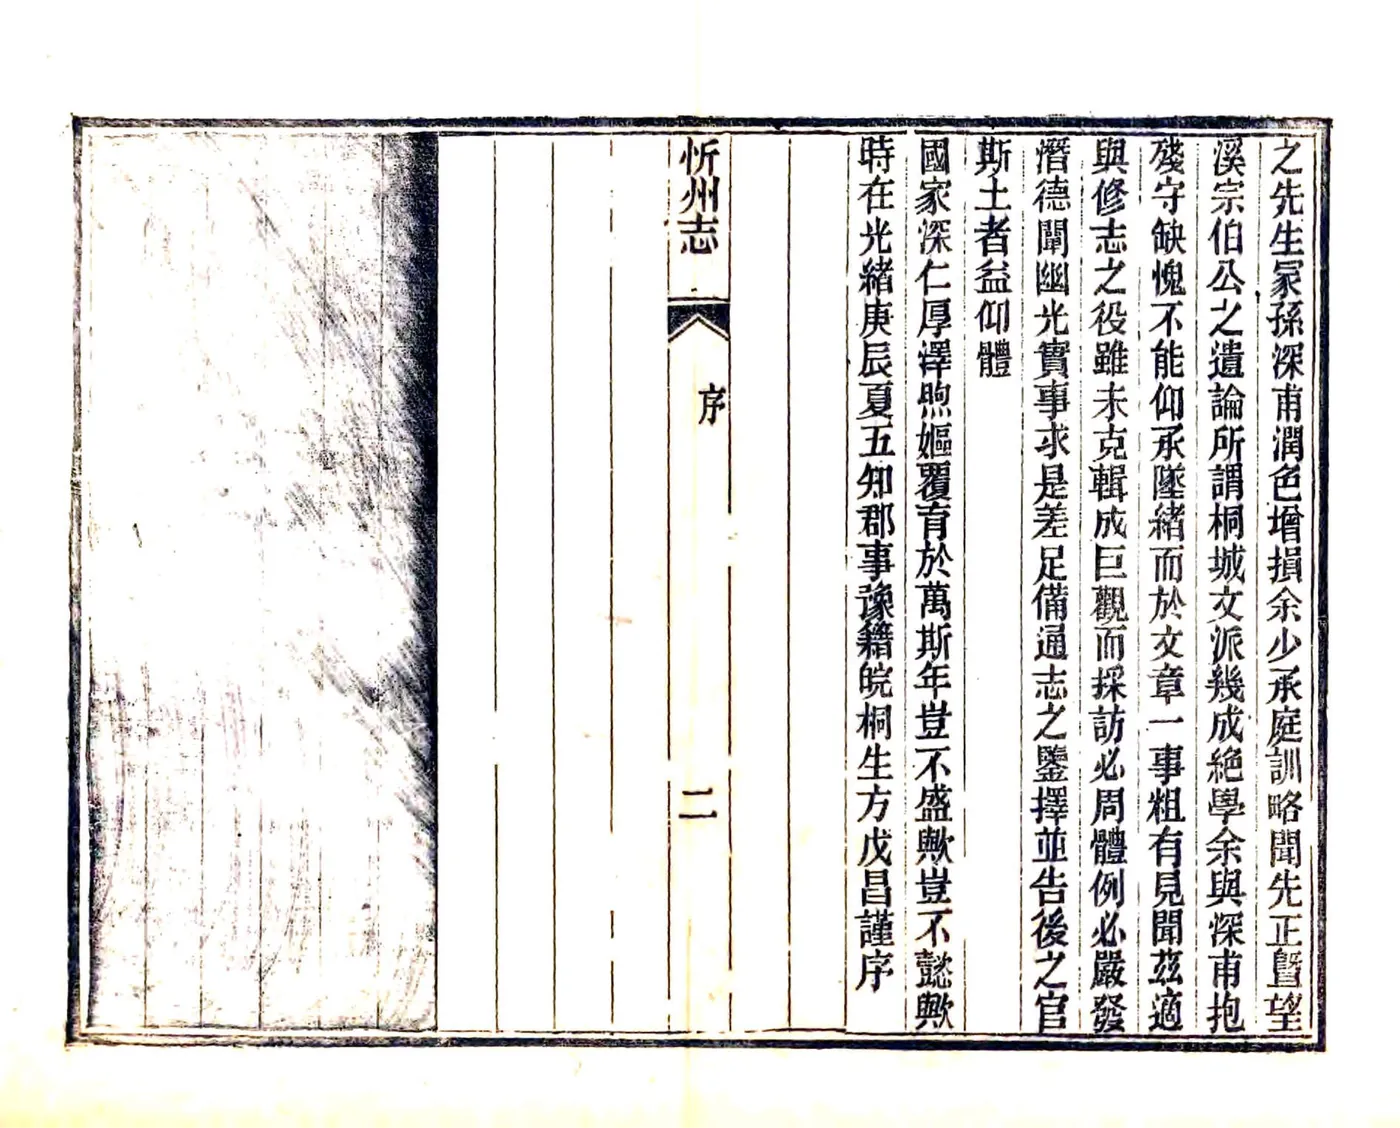 之先生冢孫深甫潤色增損余少承庭訓略聞先正曁望
溪宗伯公之遺論所謂桐城文派幾成絶學余與深甫抱
殘守缺愧不能仰承墜緒而於文章一事粗有見聞茲適
與修志之役雖未克輯成巨觀而採訪必周體例必嚴發
潛德闡幽光實事求是差足備通志之鑒擇並告後之官
斯土者益仰體
國家深仁厚澤煦嫗覆育於萬斯年豈不盛歟豈不懿歟
時在光緒庚辰夏五知郡事豫籍皖桐生方戊昌謹序
忻州志
序
二